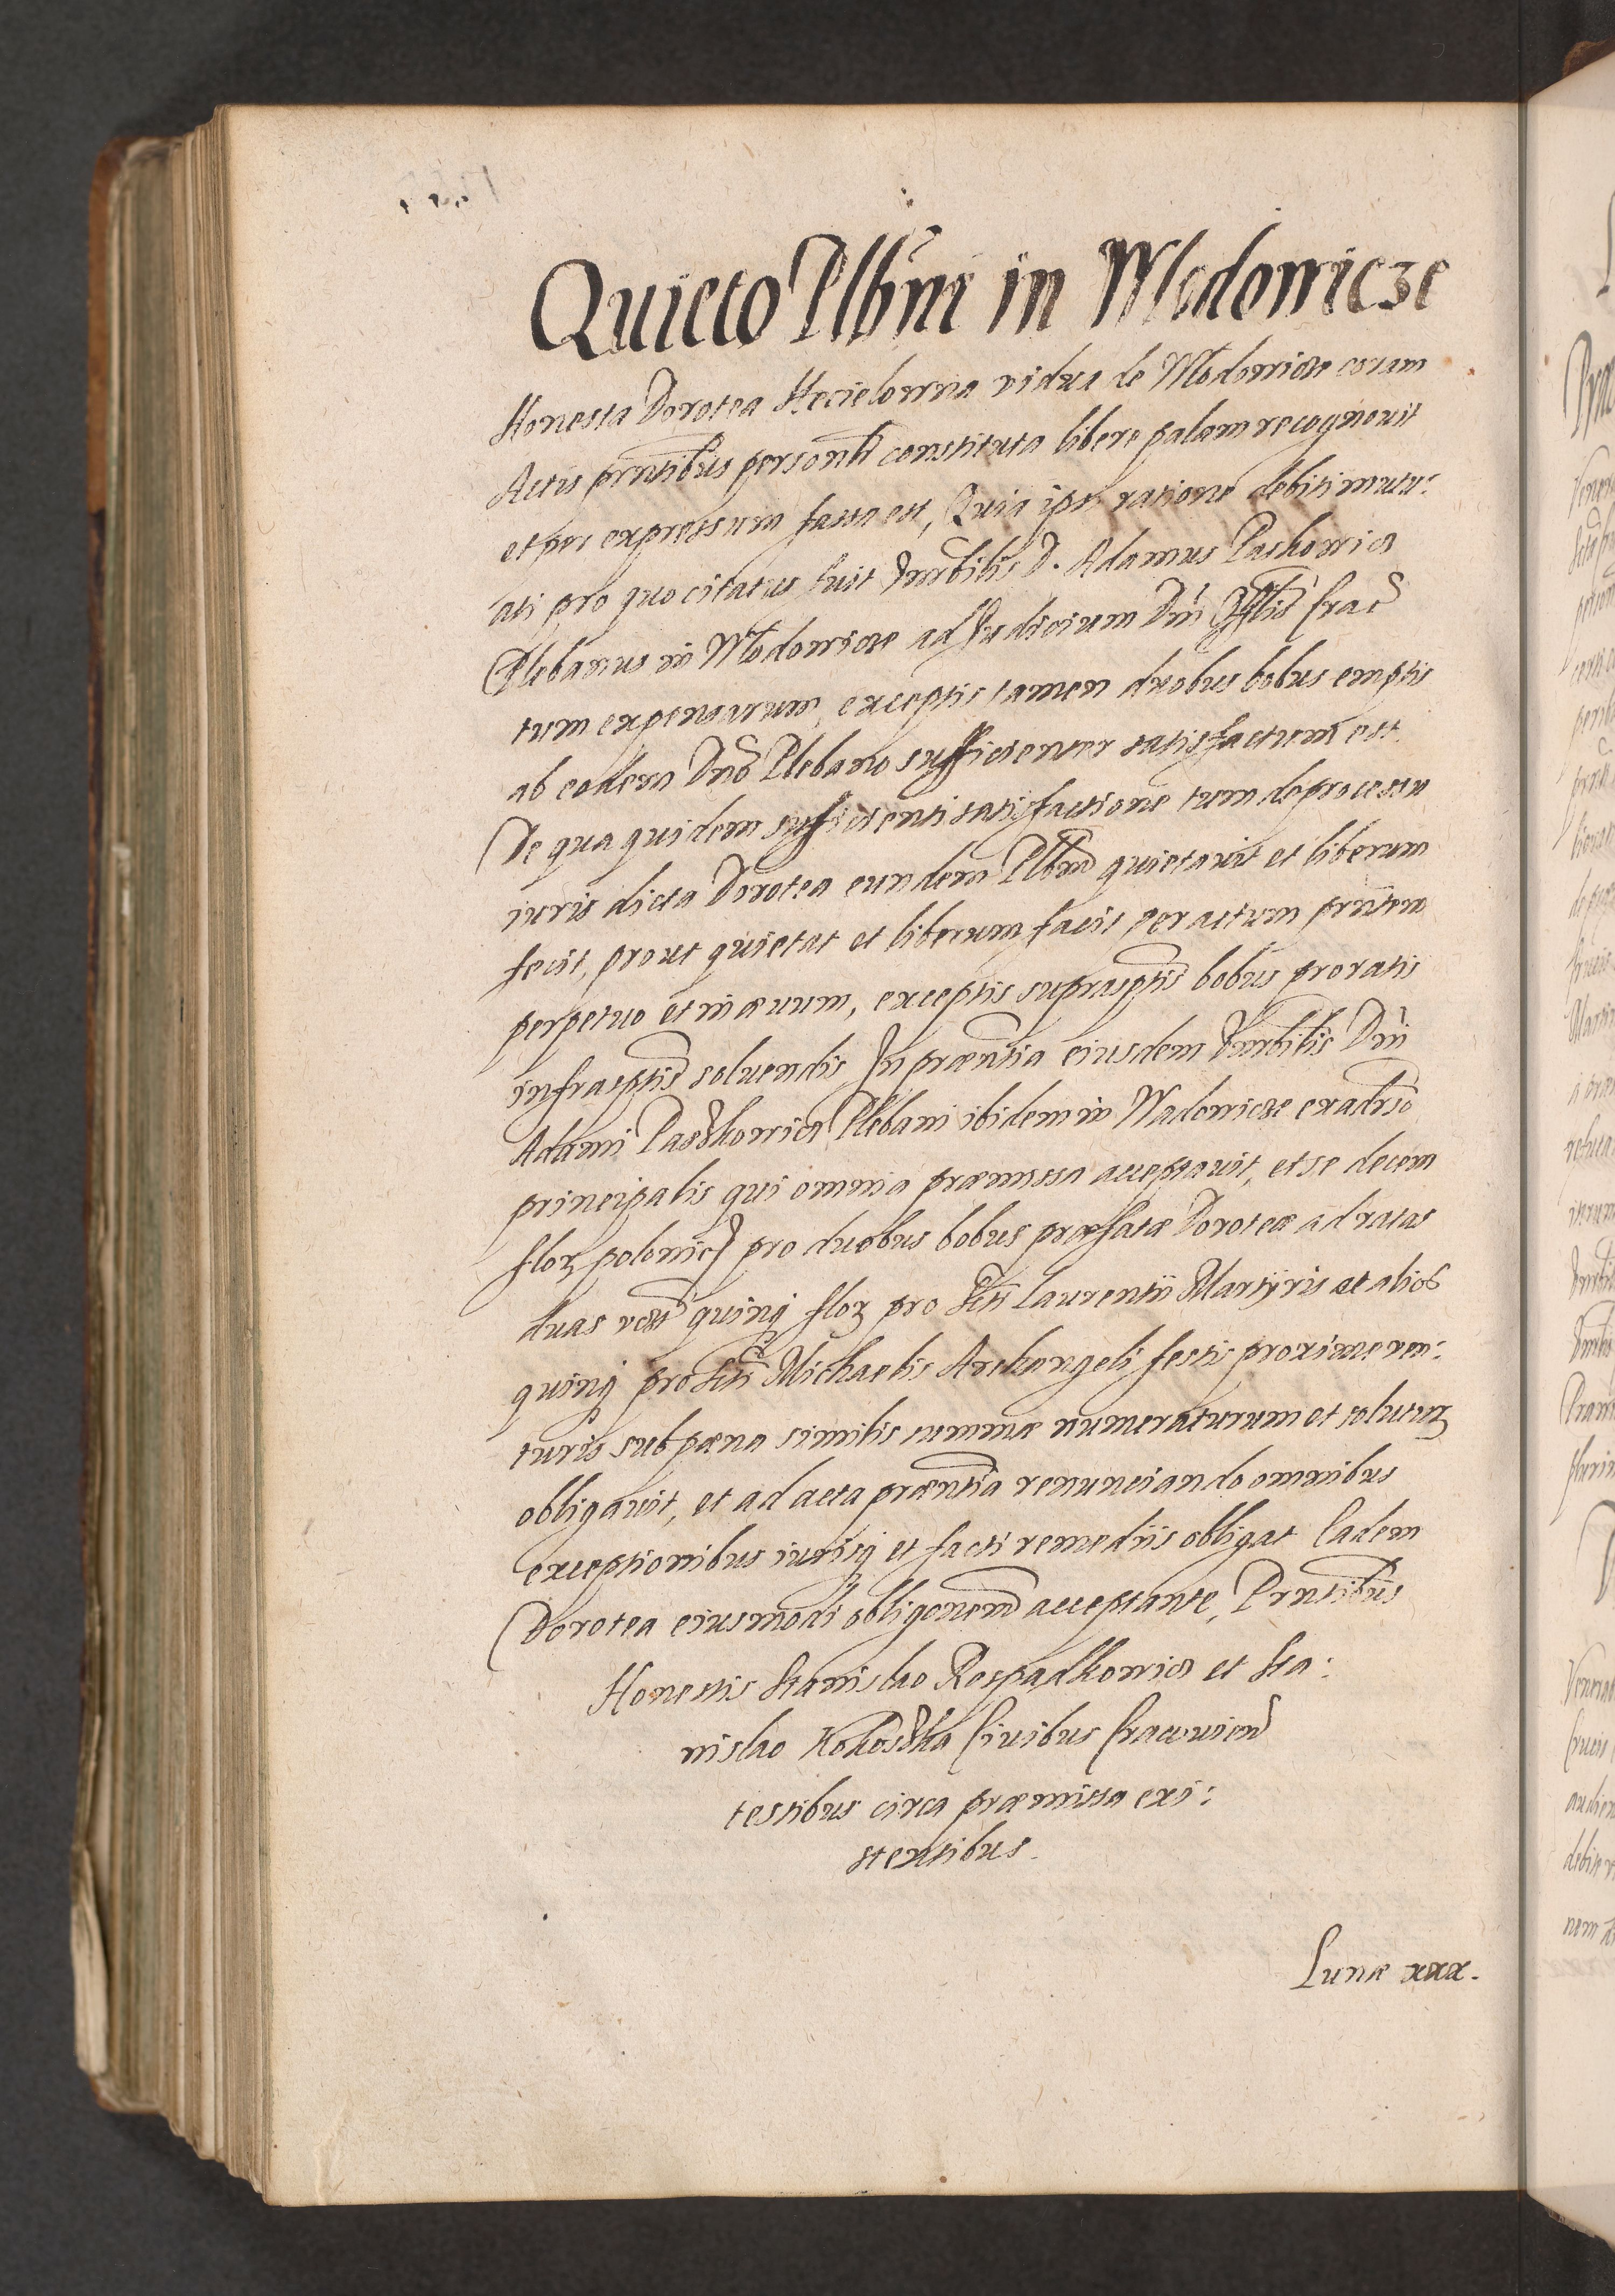 Quieto Plbni in Wlodowicze
Honesta Dorotea Kecielowna vidua de Wlodowicze coram
Actis prntibus personlr constituta libere palam recognouit
et per expressum fassa est, Quia ipsi ratione debiti mutu:
ati pro quo citatus fuit Vnrbilis D. Adamus Paskowicz
Plebanus in Wlodowicze ad Judicium Dni Offlis Crac
tum expensarum, exceptis tamen duobus bobus emptis
ab eodem Dno Plebano sufficienter satisfactum est
De qua quidem sufficienti satisfactione tum de processu
iuris dicta Dorotea eundem Plbm quietauit et liberum
fecit, prout quietat et liberum facit per actum prntem
perpetuo et in æuum, exceptis suprasptis bobus pro ratis
infrasptis soluendis In præntia eiusdem Vnrbilis Dni
Adami Passkowicz Plebani ibidem in Wadowicze ex adrso
principalis qui omnia præmissa acceptauit, et se decem
flor polonic pro duobus bobus præfatæ Doroteæ ad ratas
duas vdlt quinq flor pro Scti Laurentii Martyris et alios
quinq pro Scti Michaelis Archangeli festis proxime ven:
turis sub pæna similis summæ numeraturum et solutur
obligauit, et ad acta præntia renunciando omnibus
exceptionibus iurisq et facti remediis obligat Eadem
Dorotea eiusmodi obligonem acceptante, Prntibus
Honestis Stanislao Rospadkowicz et Sta:
nislao Kokosska Ciuibus Cracouien
testibus circa præmissa exi:
stentibus.
Lunæ xxx.